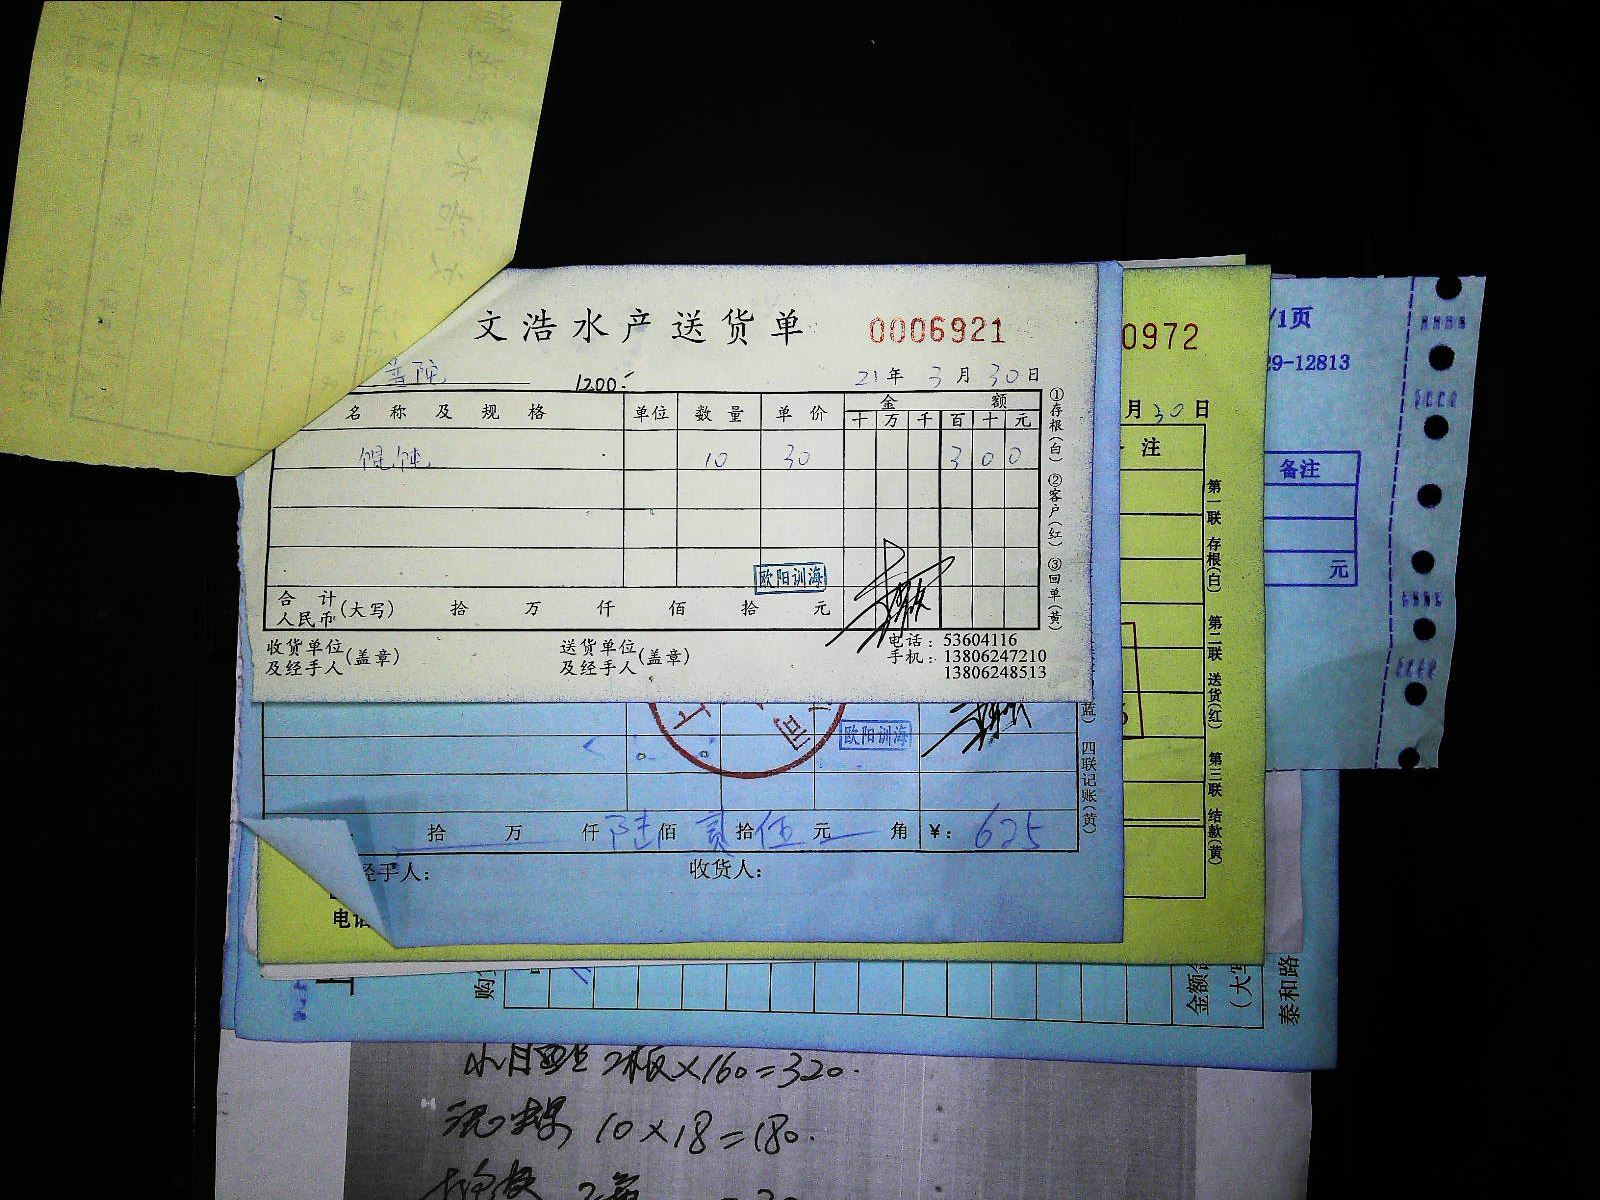 文浩水产送货单 0006921
普陀 1200.-
21年3月30日
名称及规格 单位 数量 单价 金额
十 万 千 百 十 元
馄饨 10 30 3 0 0
欧阳训海
合计
人民币(大写) 拾 万 仟 佰 拾 元
收货单位
及经手人(盖章)
送货单位
及经手人(盖章)
电话:53604116
手机:13806247210
13806248513
①存根(白) ②客户(红) ③回单(黄)
欧阳训海
拾 万 仟 陆佰 贰拾伍元 角 ¥: 625
经手人: 收货人:
蓝) 四联记账(黄)
0972
月30日
注
第一联 存根(白) 第二联 送货(红) 第三联 结款(黄)
电话
/1页
29-12813
备注
元
购
金额合
(大写
泰和路
2板×160=320.
10×18=180.